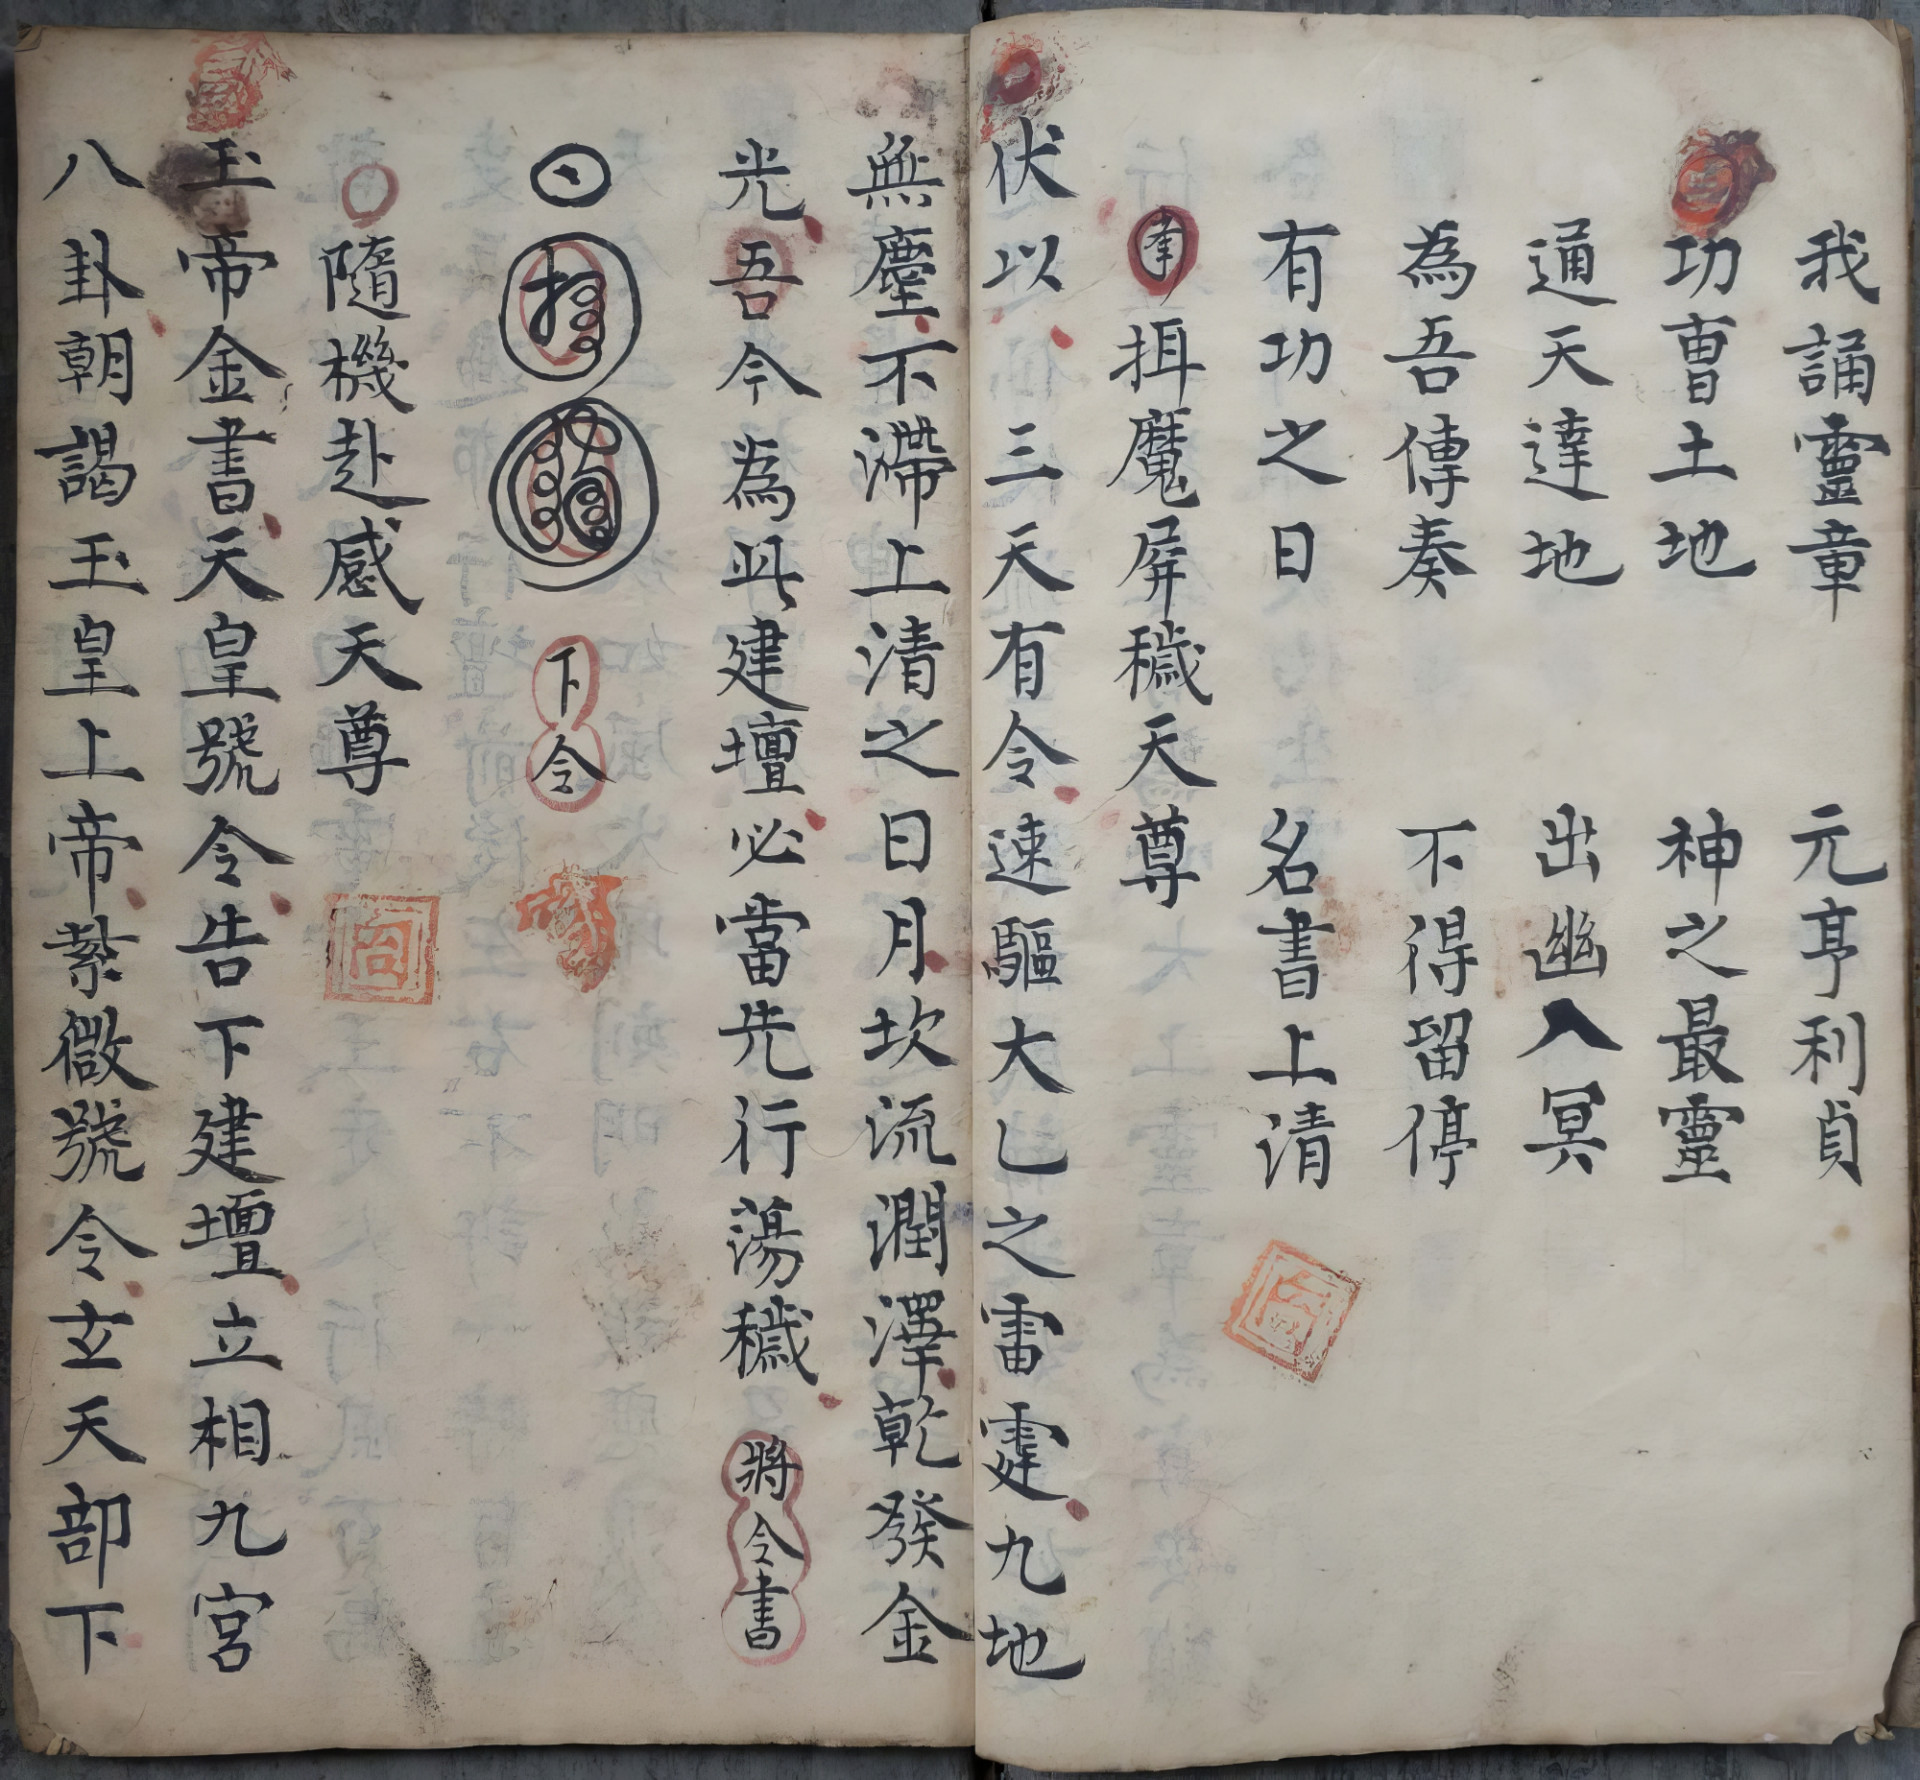 我誦靈章 元亨利貞
功曹土地 神之最靈
通天達地 出幽入冥
為吾傳奏 不得留停
有功之日 名書上清
揖魔屏穢天尊
伏以三天有令速驅大乙之雷霆九地
無塵不滯上清之日月坎流潤澤乾發金
光吾今為此建壇必當先行蕩穢 將令書
下令
隨機赴感天尊
玉帝金書天皇號令告下建壇立相九宮
八卦朝謁玉皇上帝紫微號令玄天部下